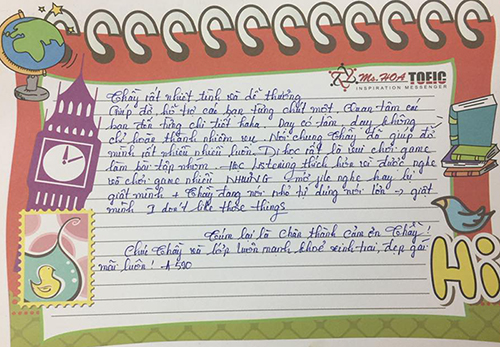 Ms. HOA TOEIC
INSPIRATION MESSENGER
Thầy rất nhiệt tình và dễ thương
Giúp đỡ hỗ trợ các bạn từng chút một. Quan tâm các
bạn đến từng chi tiết haha. Dạy có tâm, dạy không
chỉ hoàn thành nhiệm vụ. Nói chung Thầy đã giúp đỡ
mình rất nhiều nhiều luôn. Đi học rất là vui chơi game
làm bài tập nhóm. Học listening thích hơn vì được nghe
và chơi game nhiều NHƯNG mở file nghe hay bị
giật mình + Thầy đang nói nhỏ tự dưng nói lớn → giật
mình I don't like those things
Túm lại là Chân thành cảm ơn Thầy!
Chúc Thầy và lớp luôn mạnh khoẻ xinh trai, đẹp gái
mãi luôn! A520
Hi